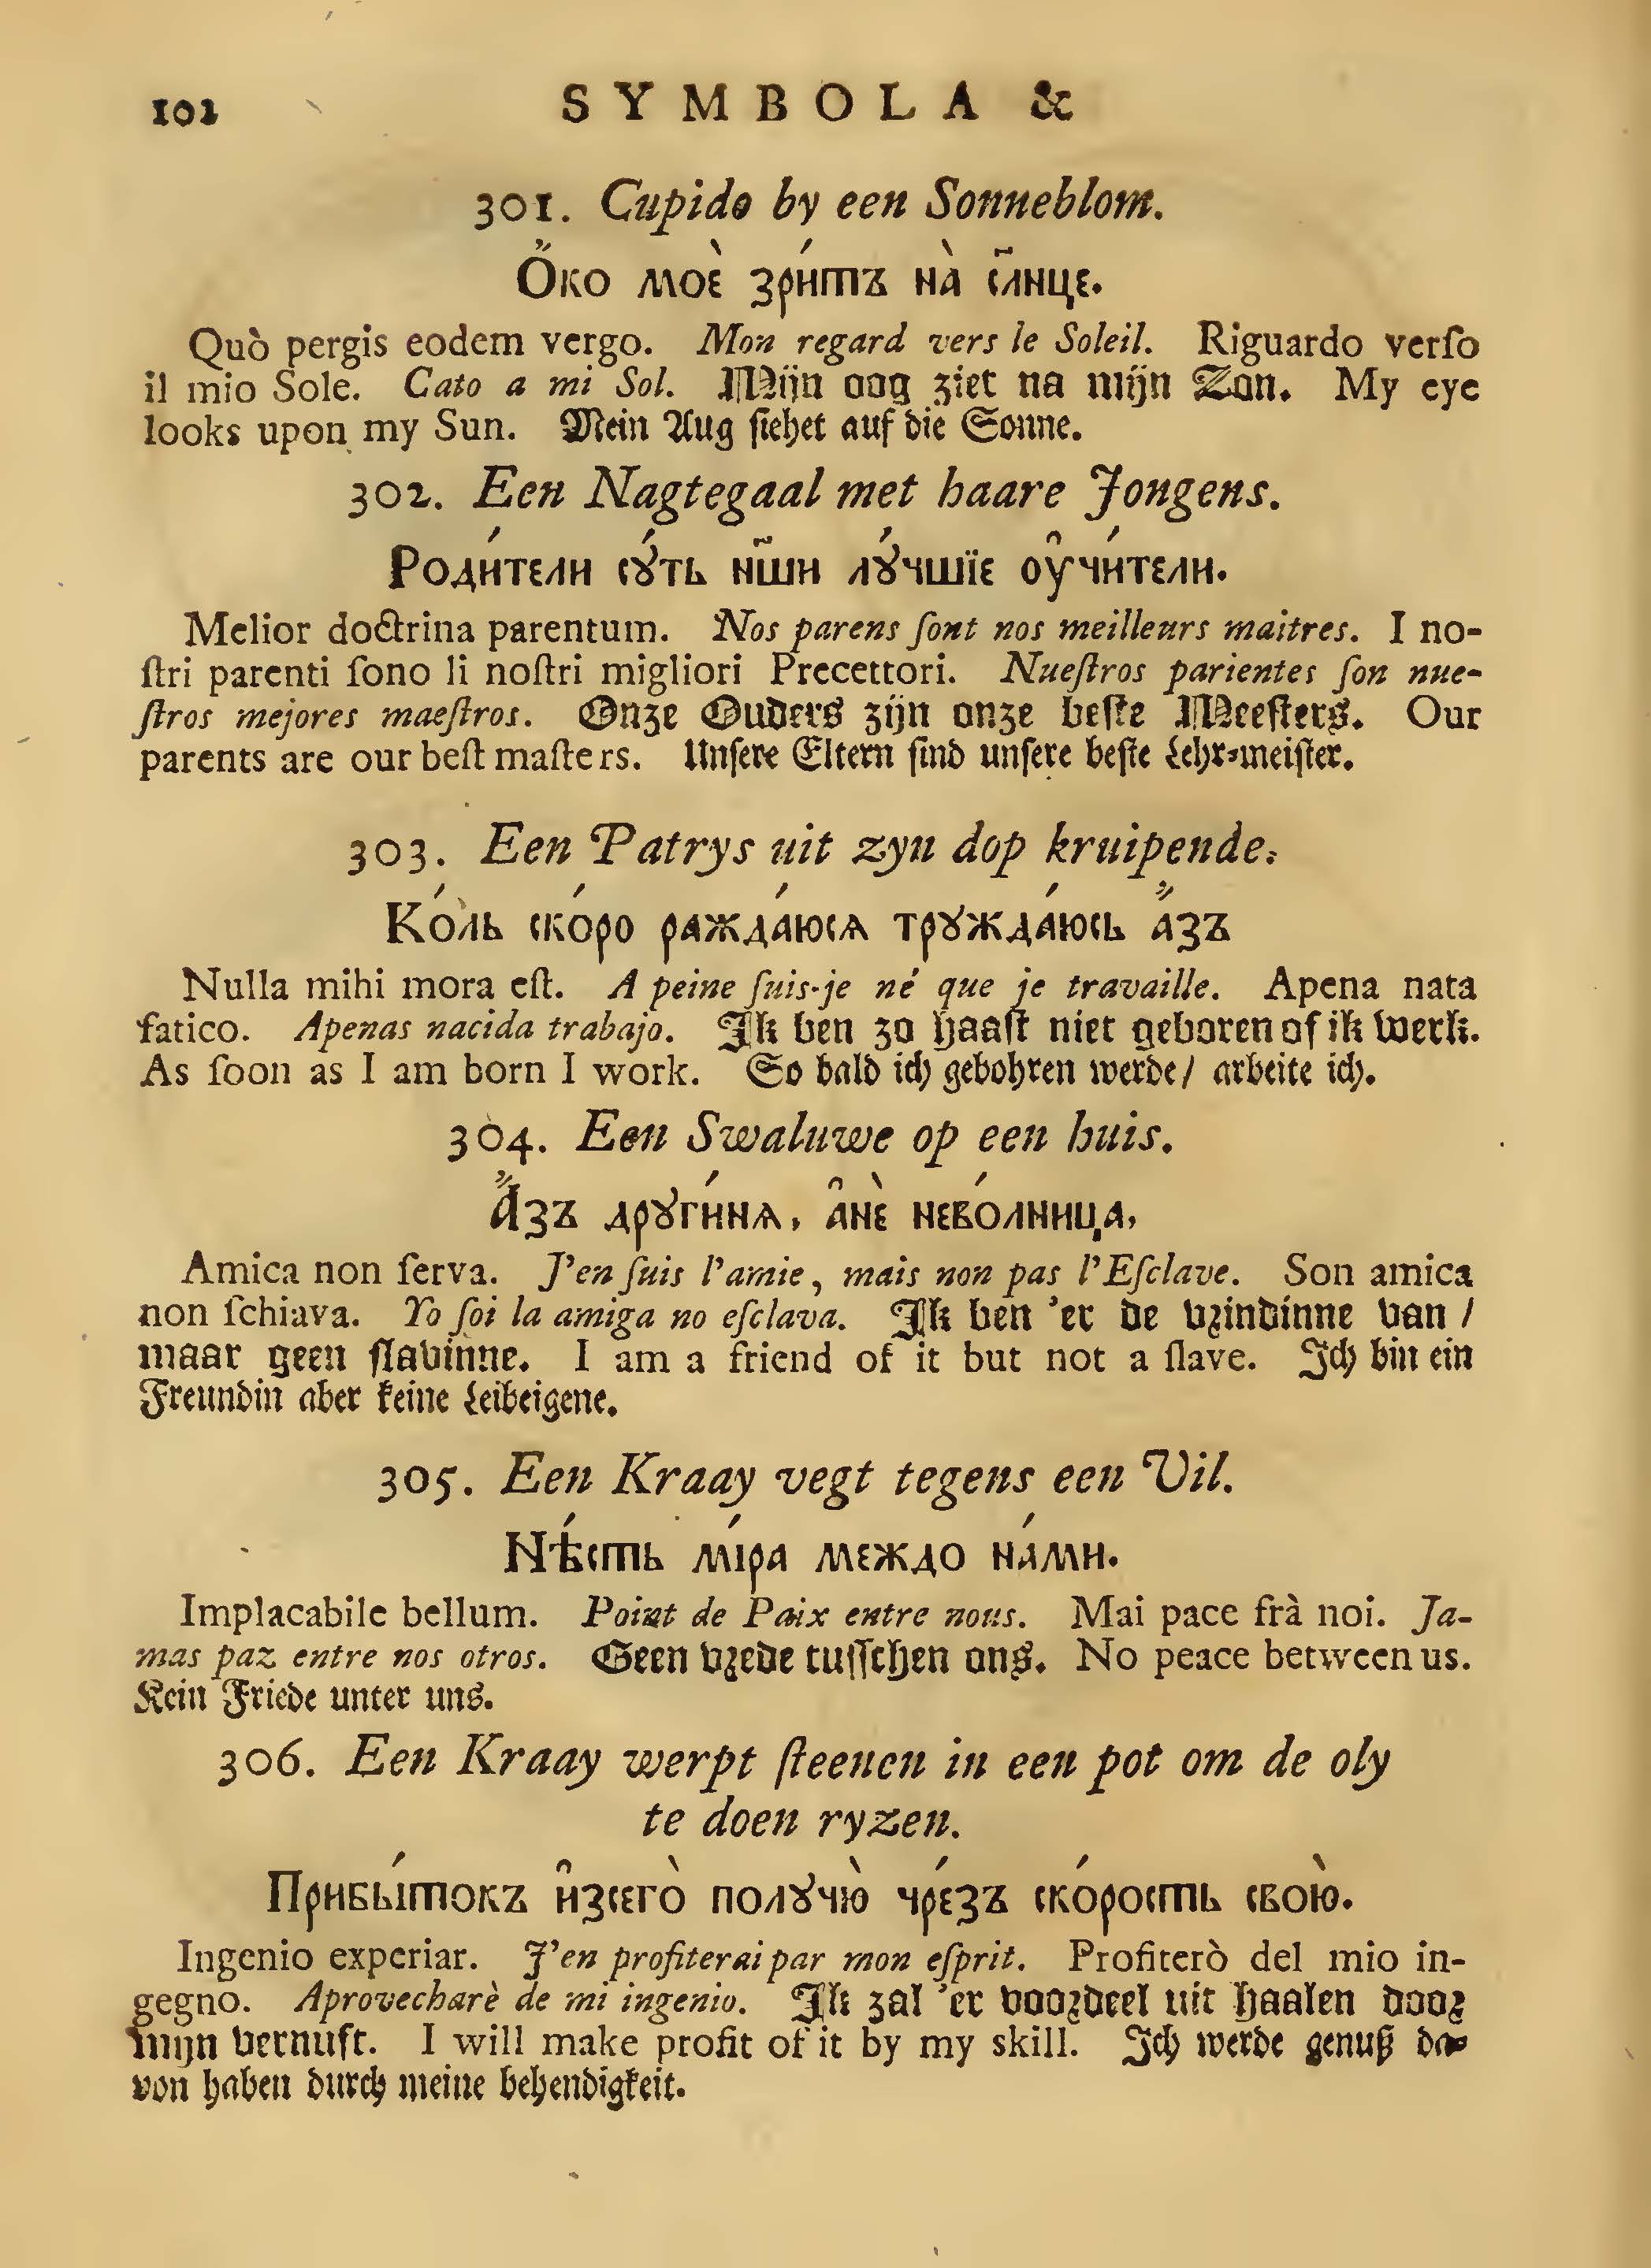 102 SYMBOLA &
301. Cupido by een Sonneblom.
Ѻ҆́ко моѐ зри́тъ на̀ сл҃нце.
Quò pergis eodem vergo. Mon regard vers le Soleil. Riguardo verſo
il mio Sole. Cato a mi Sol. Mijn oog ziet na mijn Zon. My eye
looks upon my Sun. Mein Aug ſiehet auf die Sonne.
302. Een Nagtegaal met haare Jongens.
Роди́тели сꙋ́ть нш҃и лꙋ́чшїе ᲂу҆чи́тели.
Melior doctrina parentum. Nos parens ſont nos meilleurs maitres. I no-
ſtri parenti ſono li noſtri migliori Precettori. Nueſtros parientes ſon nue-
ſtros mejores maeſtros. Onze Ouders zijn onze beſte Meeſters. Our
parents are our beſt maſters. Unſere Eltern ſind unſere beſte Lehr-meiſter.
303. Een Patrys uit zyn dop kruipende.
Ко́ль ско́ро ражда́юсѧ трꙋжда́юсь а҆́зъ
Nulla mihi mora eſt. A peine ſuis-je né que je travaille. Apena nata
fatico. Apenas nacida trabajo. Ik ben zo haaſt niet geboren of ik werk.
As ſoon as I am born I work. So bald ich gebohren werde / arbeite ich.
304. Een Swaluwe op een huis.
А҆́зъ дрꙋги́нѧ, а҆нѐ нево́лница,
Amica non ſerva. J'en ſuis l'amie, mais non pas l'Eſclave. Son amica
non ſchiava. Yo ſoi la amiga no eſclava. Ik ben 'er de vrindinne van /
maar geen ſlavinne. I am a friend of it but not a ſlave. Ich bin ein
Freundin aber keine Leibeigene.
305. Een Kraay vegt tegens een Uil.
Нѣ́сть ми́ра междо на́ми.
Implacabile bellum. Point de Paix entre nous. Mai pace frà noi. Ja-
mas paz entre nos otros. Geen vrede tuſſchen ons. No peace between us.
Kein Friede unter uns.
306. Een Kraay werpt ſteenen in een pot om de oly
te doen ryzen.
Прибы́токъ и҆зсегѡ̀ полꙋчю̀ чре́зъ ско́рость свою̀.
Ingenio experiar. J'en profiterai par mon eſprit. Profiterò del mio in-
gegno. Aprovecharè de mi ingenio. Ik zal 'er voordeel uit haalen door
mijn vernuft. I will make profit of it by my skill. Ich werde genuß da-
von haben durch meine behendigkeit.